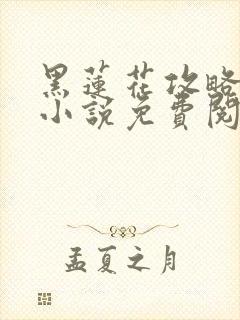 黑蓮花攻略
小說免費閱
孟夏之月